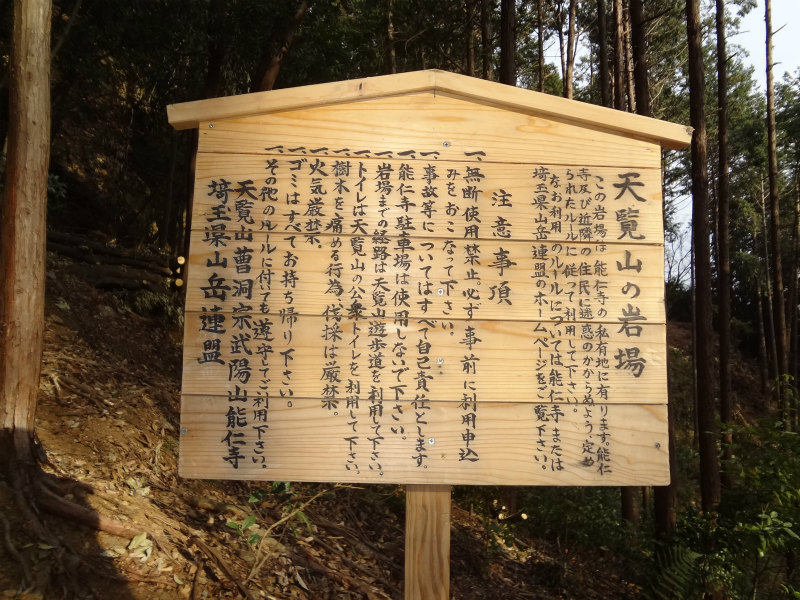 天覧山の岩場
この岩場は、能仁寺の私有地に有ります。能仁
寺及び近隣の住民に迷惑のかからぬよう定め
られたルールに従って利用して下さい。
なお利用のルールについては能仁寺または
埼玉県山岳連盟のホームページをご覧下さい。
注意事項
一、無断使用禁止。必ず事前に利用申込
みをおこなって下さい。
一、事故等についてはすべて自己責任とします。
一、能仁寺駐車場は使用しないで下さい。
一、岩場までの経路は天覧山遊歩道を利用して下さい。
一、トイレは天覧山の公衆トイレを利用して下さい。
一、樹木を痛める行為、伐採は厳禁。
一、火気厳禁。
一、ゴミはすべてお持ち帰り下さい。
一、その他のルールに付いても遵守してご利用下さい。
天覧山曹洞宗武陽山能仁寺
埼玉県山岳連盟